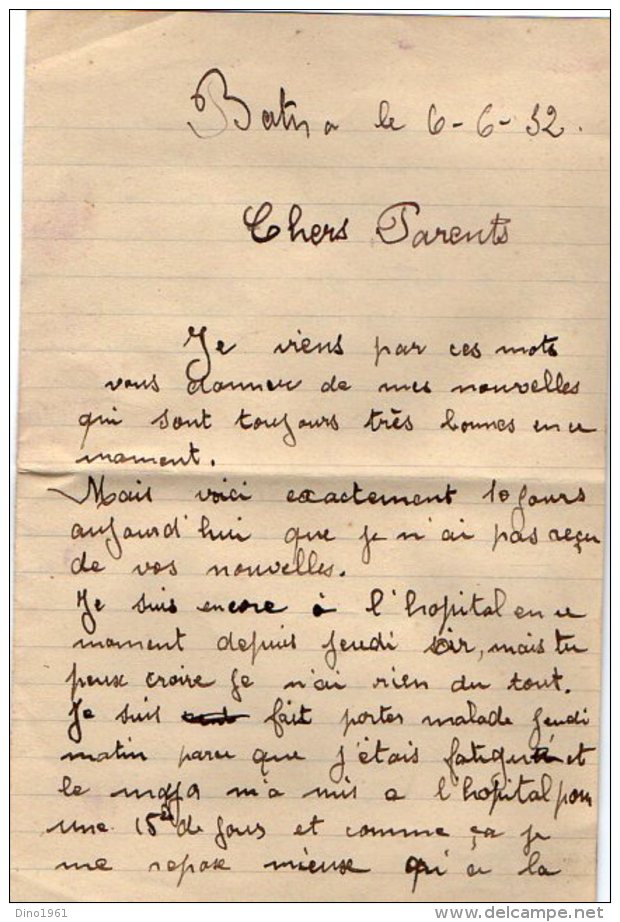 Batna le 6-6-32.
Chers Parents
Je viens par ces mots
vous donner de mes nouvelles
qui sont toujours très bonnes en ce
moment.
Mais voici exactement 10 jours
aujourd'hui que je n'ai pas reçu
de vos nouvelles.
Je suis encore à l'hopital en ce
moment depuis jeudi soir, mais tu
peux croire je n'ai rien du tout.
Je suis fait porter malade jeudi
matin parce que j'étais fatigué et
le major m'a mis a l'hopital pour
une 15è de jours et comme ça je
me repose mieux qu'a la
Dino1961
www.delcampe.net